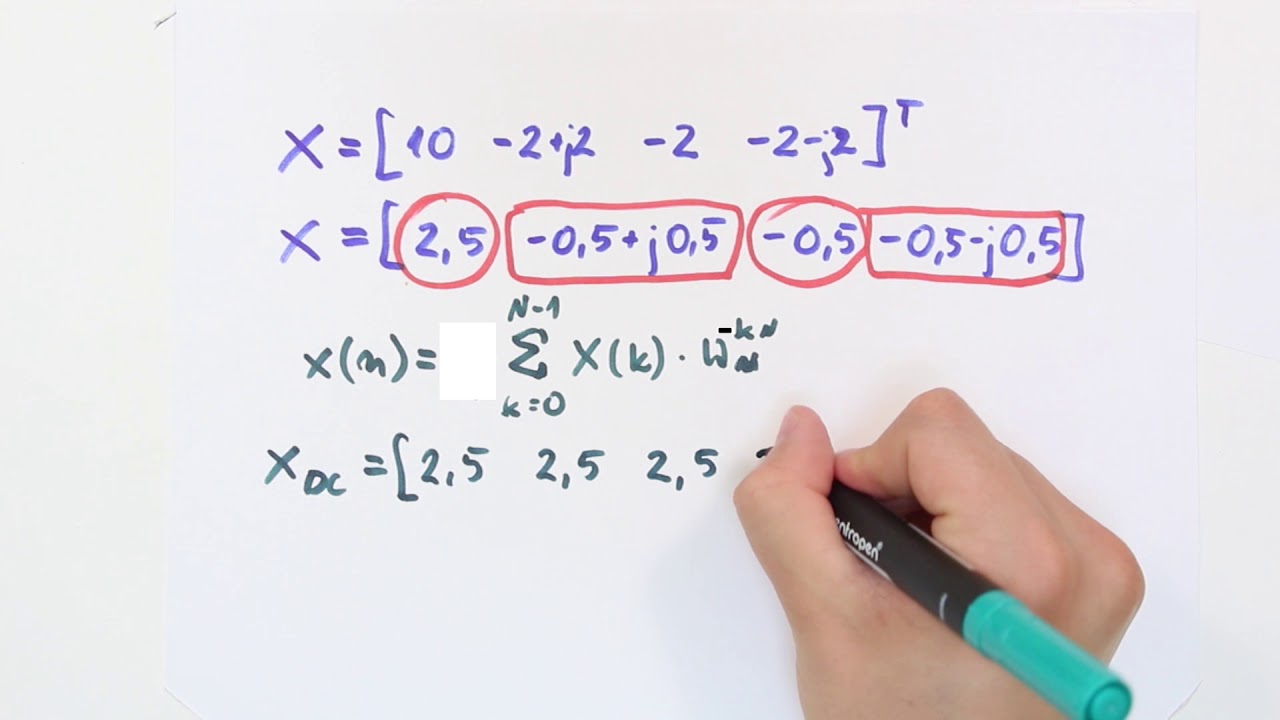 X = [10 -2+j2 -2 -2-j2]ᵀ
X = [2,5 -0,5+j0,5 -0,5 -0,5-j0,5]
x(n) = N-1 Σ k=0 X(k) · W_N^-kN
X_DC = [2,5 2,5 2,5
entropen®